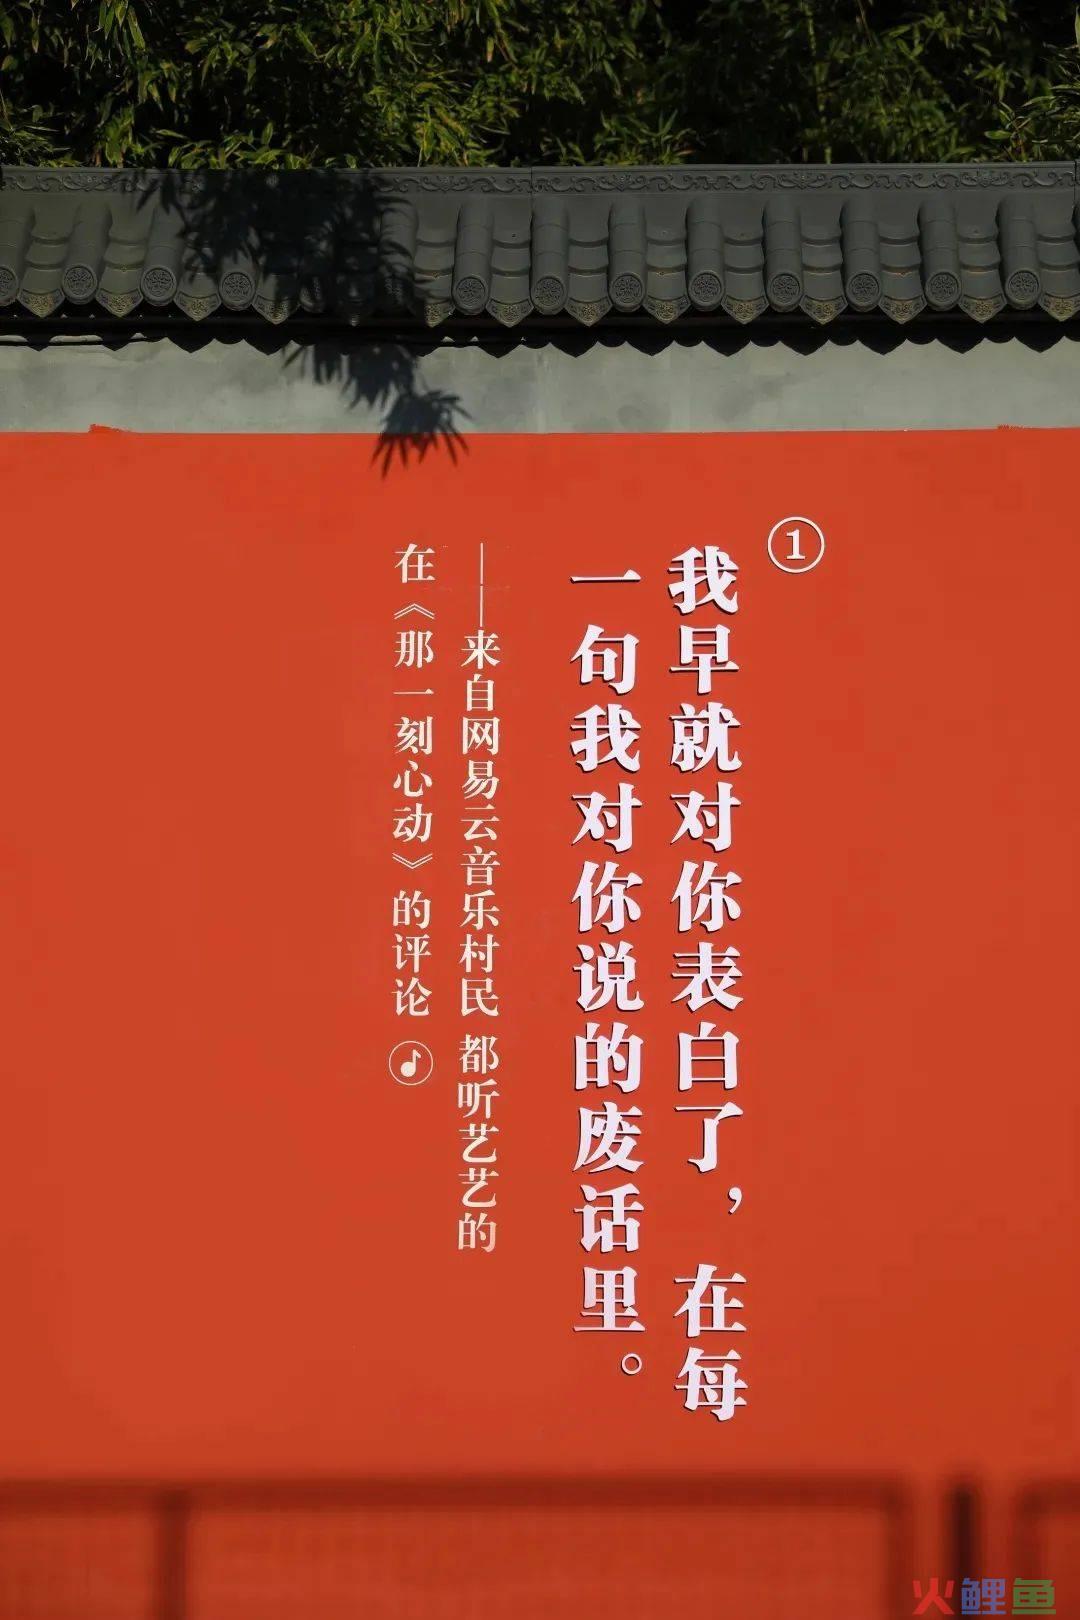 ①
我早就对你表白了，在每
一句我对你说的废话里。
——来自网易云音乐村民 都听艺艺的
在《那一刻心动》的评论
火鲤鱼